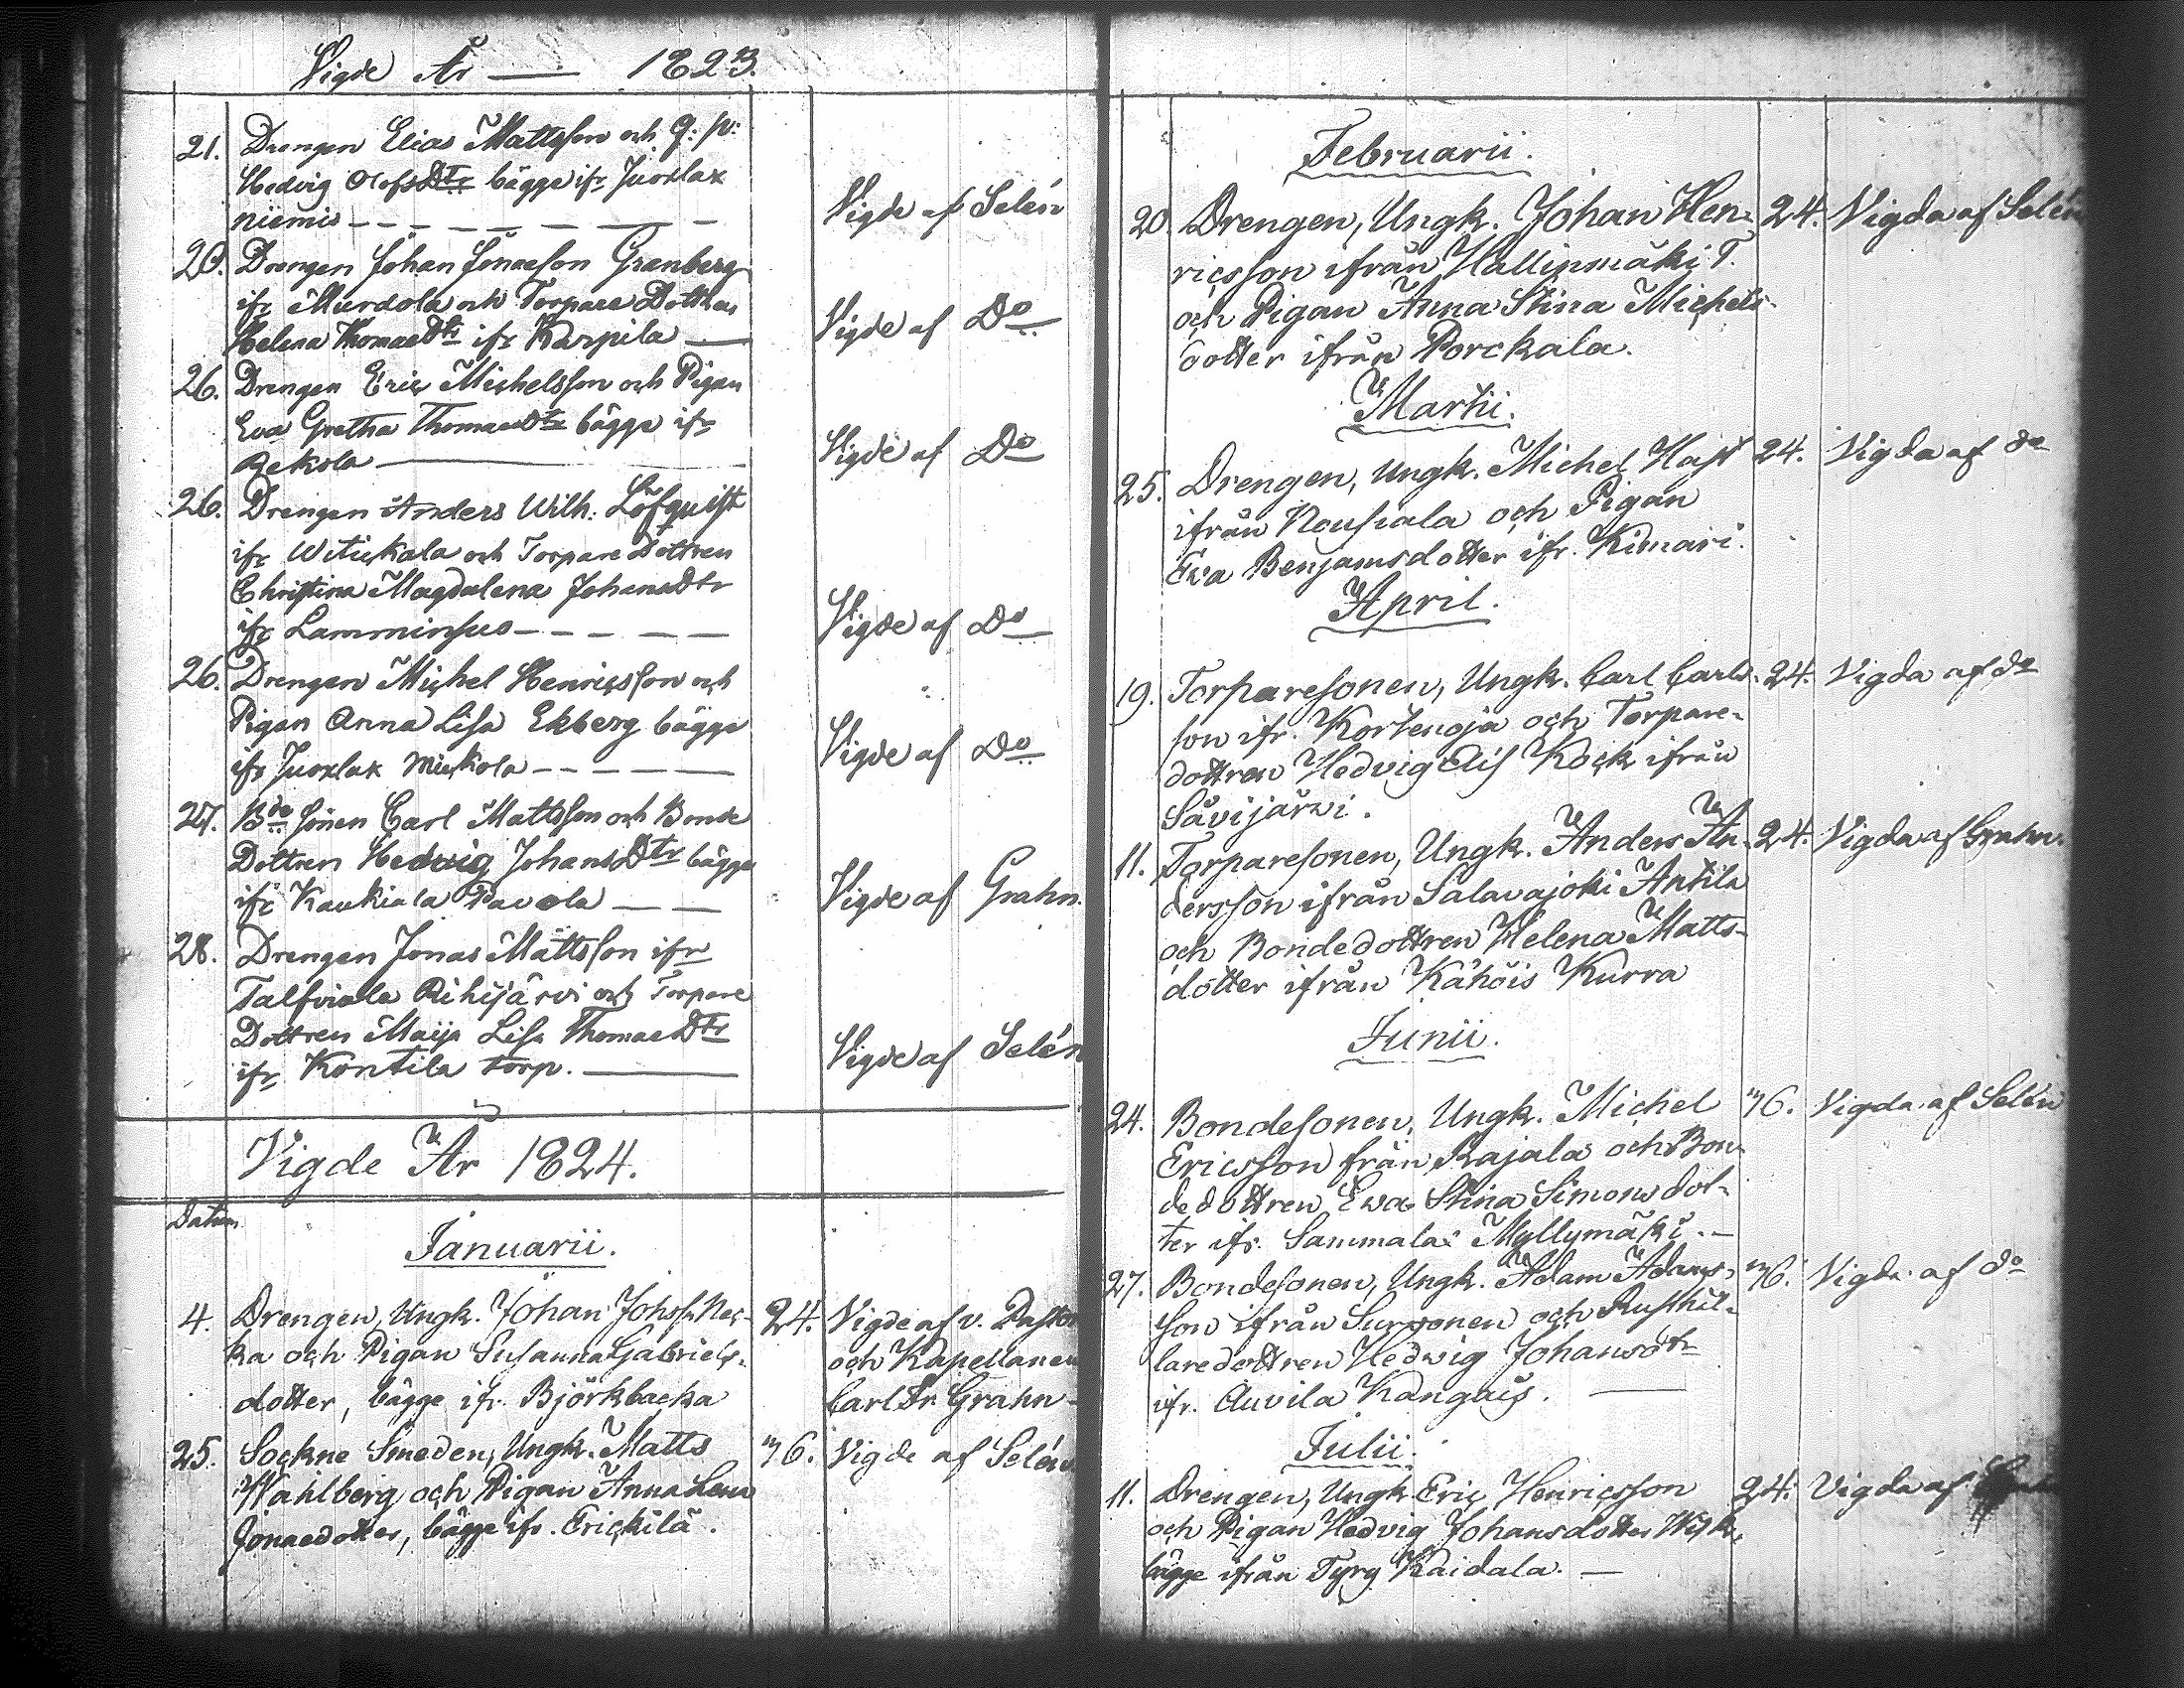 Vigde År — 1823.
21. Drengen Elias Mattsson och q: p:
Hedvig Olofs Dtr bägge ifr Juorlax
niemis — Vigde af Selén
20. Drengen Johan Jonaeson Granberg
ifr Murdola och Torpare Dottren
Helena Thomae Dtr ifr Karpila — Vigde af Do
26. Drengen Eric Michelsson och Pigan
Eva Gretha Thomae Dtr bägge ifr
Rekola — Vigde af Do
26. Drengen Anders Wilh: Löfquist
ifr Witickala och Torpare Dottren
Christina Magdalena Johans Dtr
ifr Lamminsuo — Vigde af Do
26. Drengen Michel Henricsson och
Pigan Anna Lisa Ekberg bägge
ifr Juorlax Mickola — Vigde af Do
27. Bde Sonen Carl Mattsson och Bonde
Dottren Hedwig Johans Dtr bägge
ifr Kaukiala Pavola — Vigde af Grahn.
28. Drengen Jonas Mattsson ifr
Talfviala Rihijärvi och Torpare
Dottren Maija Lisa Thomae Dtr
ifr Kontila torp. — Vigde af Selén
Vigde År 1824.
Datum
Januarii.
4. Drengen, Ungk. Johan Johsf. Nec- 24. Vigde af v. Pastor
ka och Pigan Susanna Gabriels- och Kapellanen
dotter, bägge ifr. Björkbacka Carl Fr. Grahn -
25. Sockne Smeden, Ungk. Matts 76. Vigde af Selén
Wahlberg och Pigan Anna Lena
Jonaedotter, bägge ifr. Erickilä.
Februarii.
20. Drengen, Ungk. Johan Hen- 24. Vigda af Selén
ricsson ifrån Hallinmäki T.
och Pigan Anna Stina Michels-
dotter ifrån Porckala.
Martii.
25. Drengen, Ungk. Michel Hast 24. Vigda af do
ifrån Nousiala och Pigan
Eva Benjamsdotter ifr. Kimari.
April.
19. Torparesonen, Ungk. Carl Carls- 24. Vigda af do
son ifr. Kortenoja och Torpare-
dottren Hedvig Elis Kock ifrån
Savijärvi.
11. Torparesonen, Ungk. Anders An- 24. Vigda af Grahn.
dersson ifrån Salavajoki Antila
och Bondedottren Helena Matts-
dotter ifrån Kähöis Kurra
Junii.
24. Bondesonen, Ungk. Michel 76. Vigda af Selén
Ericsson från Rajala och Bon-
dedottren Ewa Stina Simonsdot-
ter ifr. Sammala Myllymäki. —
27. Bondesonen, Ungk. Adam Adams- 76. Vigda af do
son ifrån Surgonen och Rusthål-
laredottren Hedwig Johansdtr
ifr. Auvila Kangais. —
Julii.
11. Drengen, Ungk. Eric Henricsson 24. Vigda af
och Pigan Hedvig Johansdotter
bägge ifrån Tyry Kaidala. —